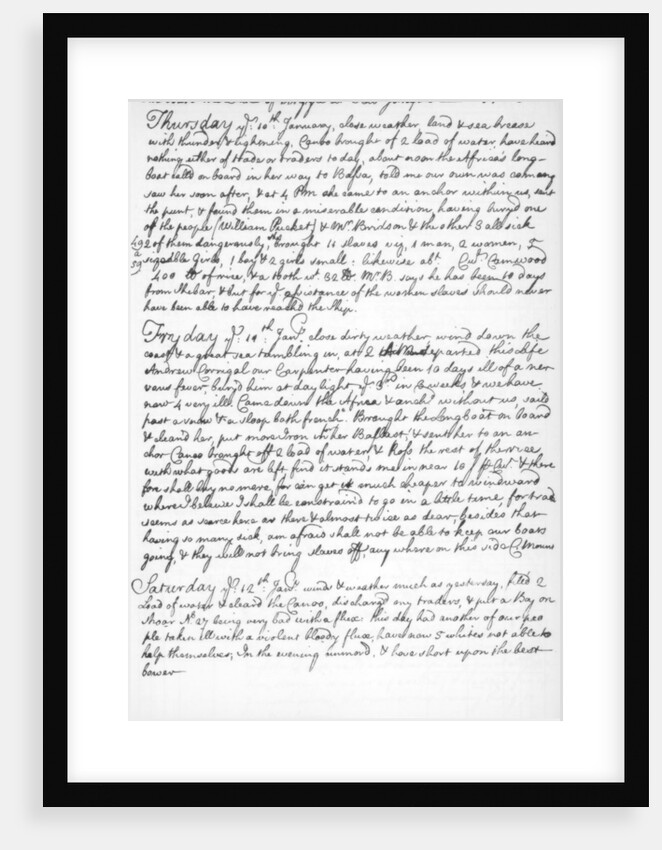 Thursday yᵉ 10th January, close weather, land & sea breese
with thunder & lightening, Canoo brought off 2 load of water have heard
nothing either of trade or traders to day, about noon the Africa's long-
boat call'd on board in her way to Bassa, told me our own was coming
saw her soon after, & at 4 PM she came to an anchor within us, sent
the punt, & found them in a miserable condition, having bury'd one
of the people (William Pucket) & Mr. Bridson & the other 3 all sick
2 of them dangerously, brought 11 slaves viz, 1 man, 2 women, 5
49 a 59
sizeable Girls, 1 boy & 2 girls small: likewise abt Cwt Camwood
400 lb of rice, & a tooth wt. 32 lb Mr. B. says he has been 10 days
from Shebar, & but for yᵉ assistance of the women slaves should never
have been able to have reach'd the Ship.
Fryday yᵉ 11th Jany. close dirty weather, wind down the
coast & a great sea tumbling in, at 2 departed this life
Andrew Corrigal our Carpenter having been 10 days ill of a ner-
vous fever, bury'd him at day light yᵉ 3rd in 2 weeks & we have
now 4 very ill. Came down the Africa & anchd without us, sail'd
past a snow & a sloop both french. Brought the Longboat on board
& clean'd her, put more Iron in her Ballast, & sent her to an an-
chor Canoo brought off 2 load of water, & Ross the rest of the rice,
with what goods are left find it stands me in near 10/ ⅌ Cwt. & there-
fore shall buy no more, for can get it much cheaper to windward
where I believe I shall be constrain'd to go in a little time, for trade
seems as scarce here as there & almost twise as dear, besides that
having so many sick, am afraid shall not be able to keep our boats
going, & they will not bring slaves off, any where on this side C: Mount
Saturday yᵉ 12th Jany. winds & weather much as yesterday, fill'd 2
Load of water & clear'd the Canoo, discharg'd my traders, & put a Boy on
Shoar No. 27 being very bad with a flux. this day had another of our peo-
ple taken ill with a violent bloody flux, have now 5 whites not able to
help themselves; In the evening unmoor'd, & have short upon the best
bower